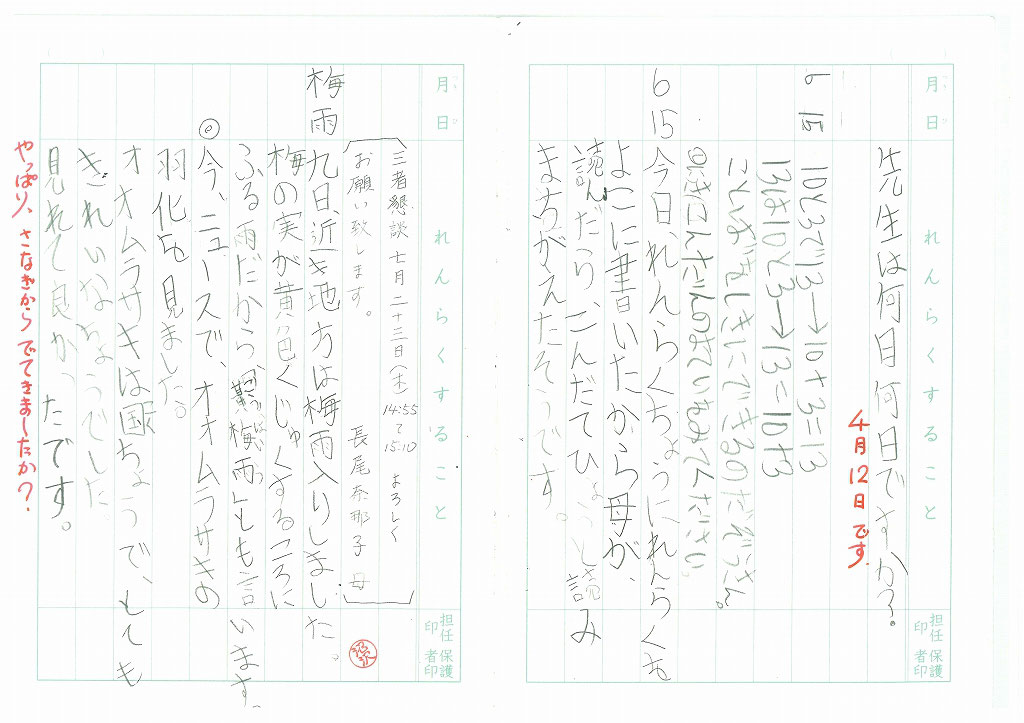 月日
れんらくすること
担任印
保護者印
先生は何月何日ですか?
4月12日です
6 15
10と3で13→10+3=13
13は10と3→13=10+3
6 15
今日、れんらくちょうにれんらくを
よこに書いたから母が、
読んだり、こんだてひょうと読み
まちがえたそうです。
月日
れんらくすること
担任印
保護者印
三者懇談 七月二十三日(木) 14:55〜15:10 よろしく
お願い致します。 長尾奈那子 母
梅雨
九日、近き地方は梅雨入りしました。
梅の実が黄色くじゅくするころに
ふる雨だから、「黄梅雨」とも言います。
◎今、ニュースで、オオムラサキの
羽化を見ました。
オオムラサキは国ちょうで、とても
きれいなちょうでした。
見れて良かったです。
やっぱり、さなぎからでてきましたか?